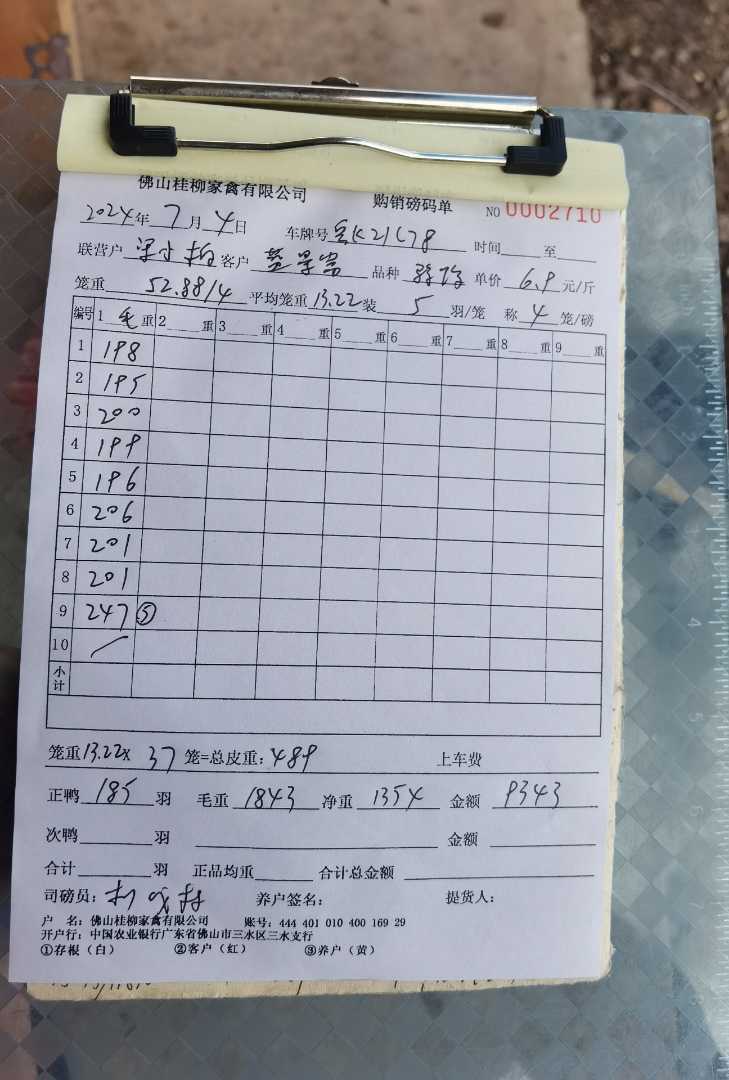 佛山桂柳家禽有限公司 购销磅码单 NO 0002710
2024年 7月 4日 车牌号 K21C78 时间 至
联营户 客户 品种 单价 6.9 元/斤
笼重 52.88/4 平均笼重 13.22 装 5 羽/笼 称 4 笼/磅
编号 1 毛 重 2 重 3 重 4 重 5 重 6 重 7 重 8 重 9 重
1 198
2 195
3 200
4 199
5 196
6 206
7 201
8 201
9 247 ⑤
10 /
小计
笼重 13.22x 37 笼=总皮重: 489 上车费
正鸭 185 羽 毛重 1843 净重 1354 金额 9343
次鸭 羽 金额
合计 羽 正品均重 合计总金额
司磅员: 养户签名: 提货人:
户 名: 佛山桂柳家禽有限公司 账号: 444 401 010 400 169 29
开户行: 中国农业银行广东省佛山市三水区三水支行
①存根（白） ②客户（红） ③养户（黄）